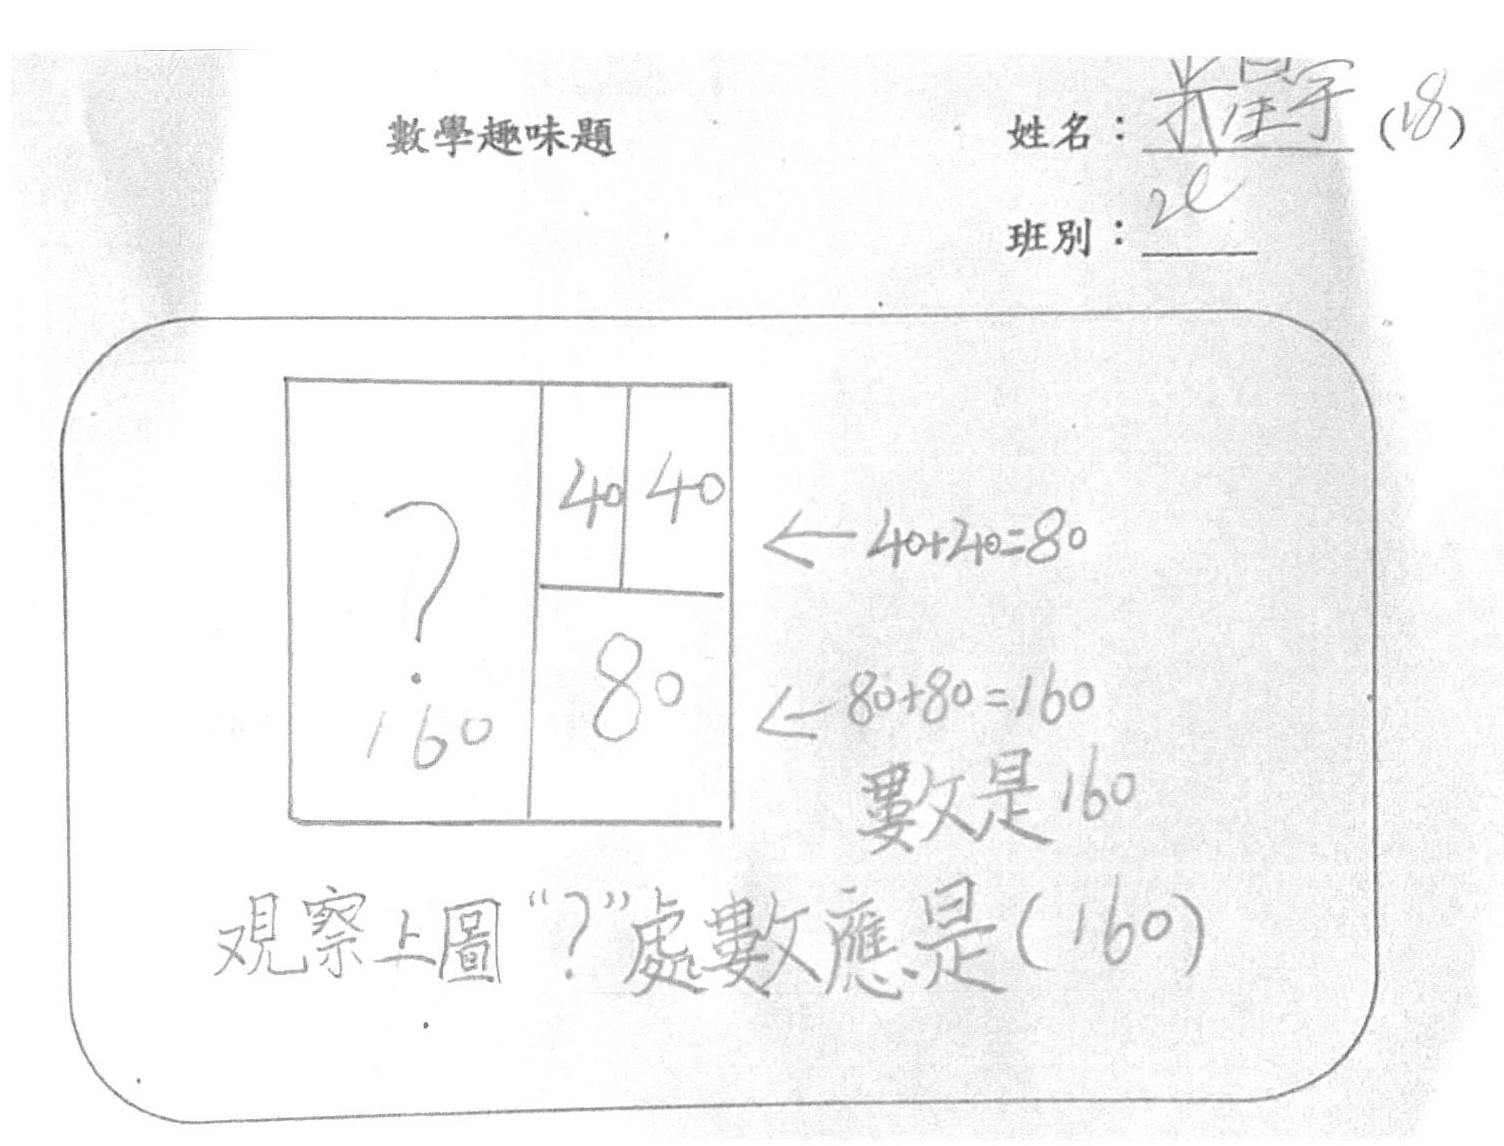 數學趣味題
姓名：吳星宇 (18)
班別：2C
40 40
← 40+40=80
?
80
160
← 80+80=160
數是160
观察上圖“？”處數應是(160)